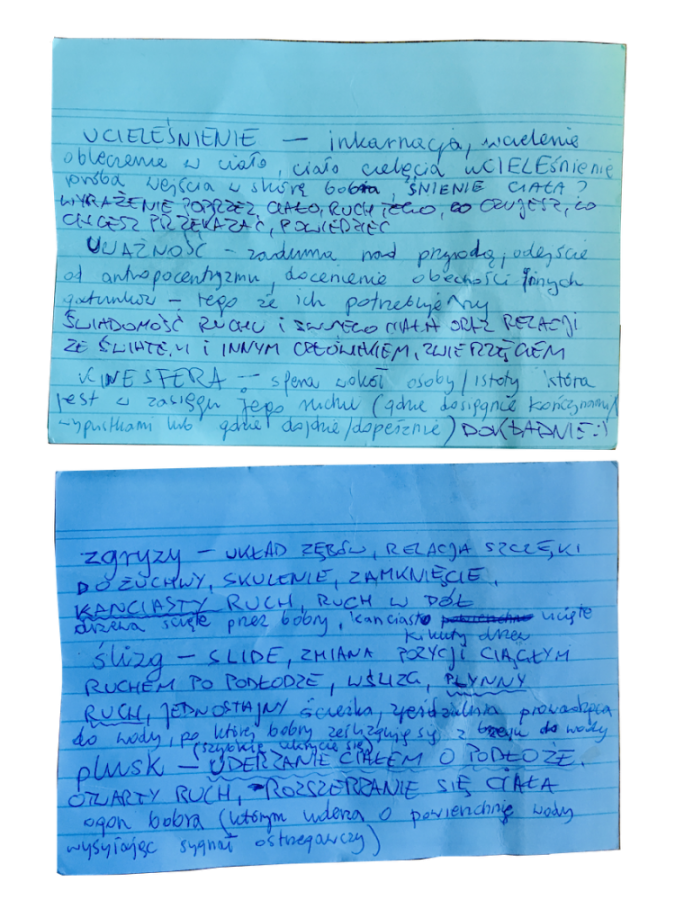 UCIELEŚNIENIE – inkarnacja, wcielenie
obleczenie w ciało, ciało cielęcia uCIELEŚnienie
próba wejścia w skórę bobra, ŚNIENIE CIAŁA?
WYRAŻENIE POPRZEZ CIAŁO, RUCH, TEGO, CO CZUJESZ, CO
CHCESZ PRZEKAZAĆ, POWIEDZIEĆ
UWAŻNOŚĆ – zaduma nad przyrodą, odejście
od antropocentryzmu, docenienie obecności innych
gatunków – tego że ich potrzebujemy
ŚWIADOMOŚĆ RUCHU I SWOJEGO CIAŁA ORAZ RELACJI
ZE ŚWIATEM I INNYM CZŁOWIEKIEM, ZWIERZĘCIEM
KINESFERA – sfera wokół osoby/istoty która
jest w zasięgu jego ruchu (gdzie dosięgnie kończynami/
wypustkami lub gdzie dojdzie/dopełznie) DOKŁADNIE :)
zgryzy – UKŁAD ZĘBÓW, RELACJA SZCZĘKI
DO ŻUCHWY, SKULENIE, ZAMKNIĘCIE,
KANCIASTY RUCH, RUCH W DÓŁ
drzewa ścięte przez bobry, kanciasto powierzchnie ucięte
kikuty drzew
ślizg – SLIDE, ZMIANA POZYCJI CIĄGŁYM
RUCHEM PO PODŁODZE, WŚLIZG, PŁYNNY
RUCH, JEDNOSTAJNY ścieżka, zjeżdżalnia prowadząca
do wody, po której bobry ześlizgują się z brzegu do wody
(szybkie ukrycie się)
plusk – UDERZANIE CIAŁEM O PODŁOŻE,
OTWARTY RUCH, ROZSZERZANIE SIĘ CIAŁA
ogon bobra (którym uderza o powierzchnię wody
wysyłając sygnał ostrzegawczy)